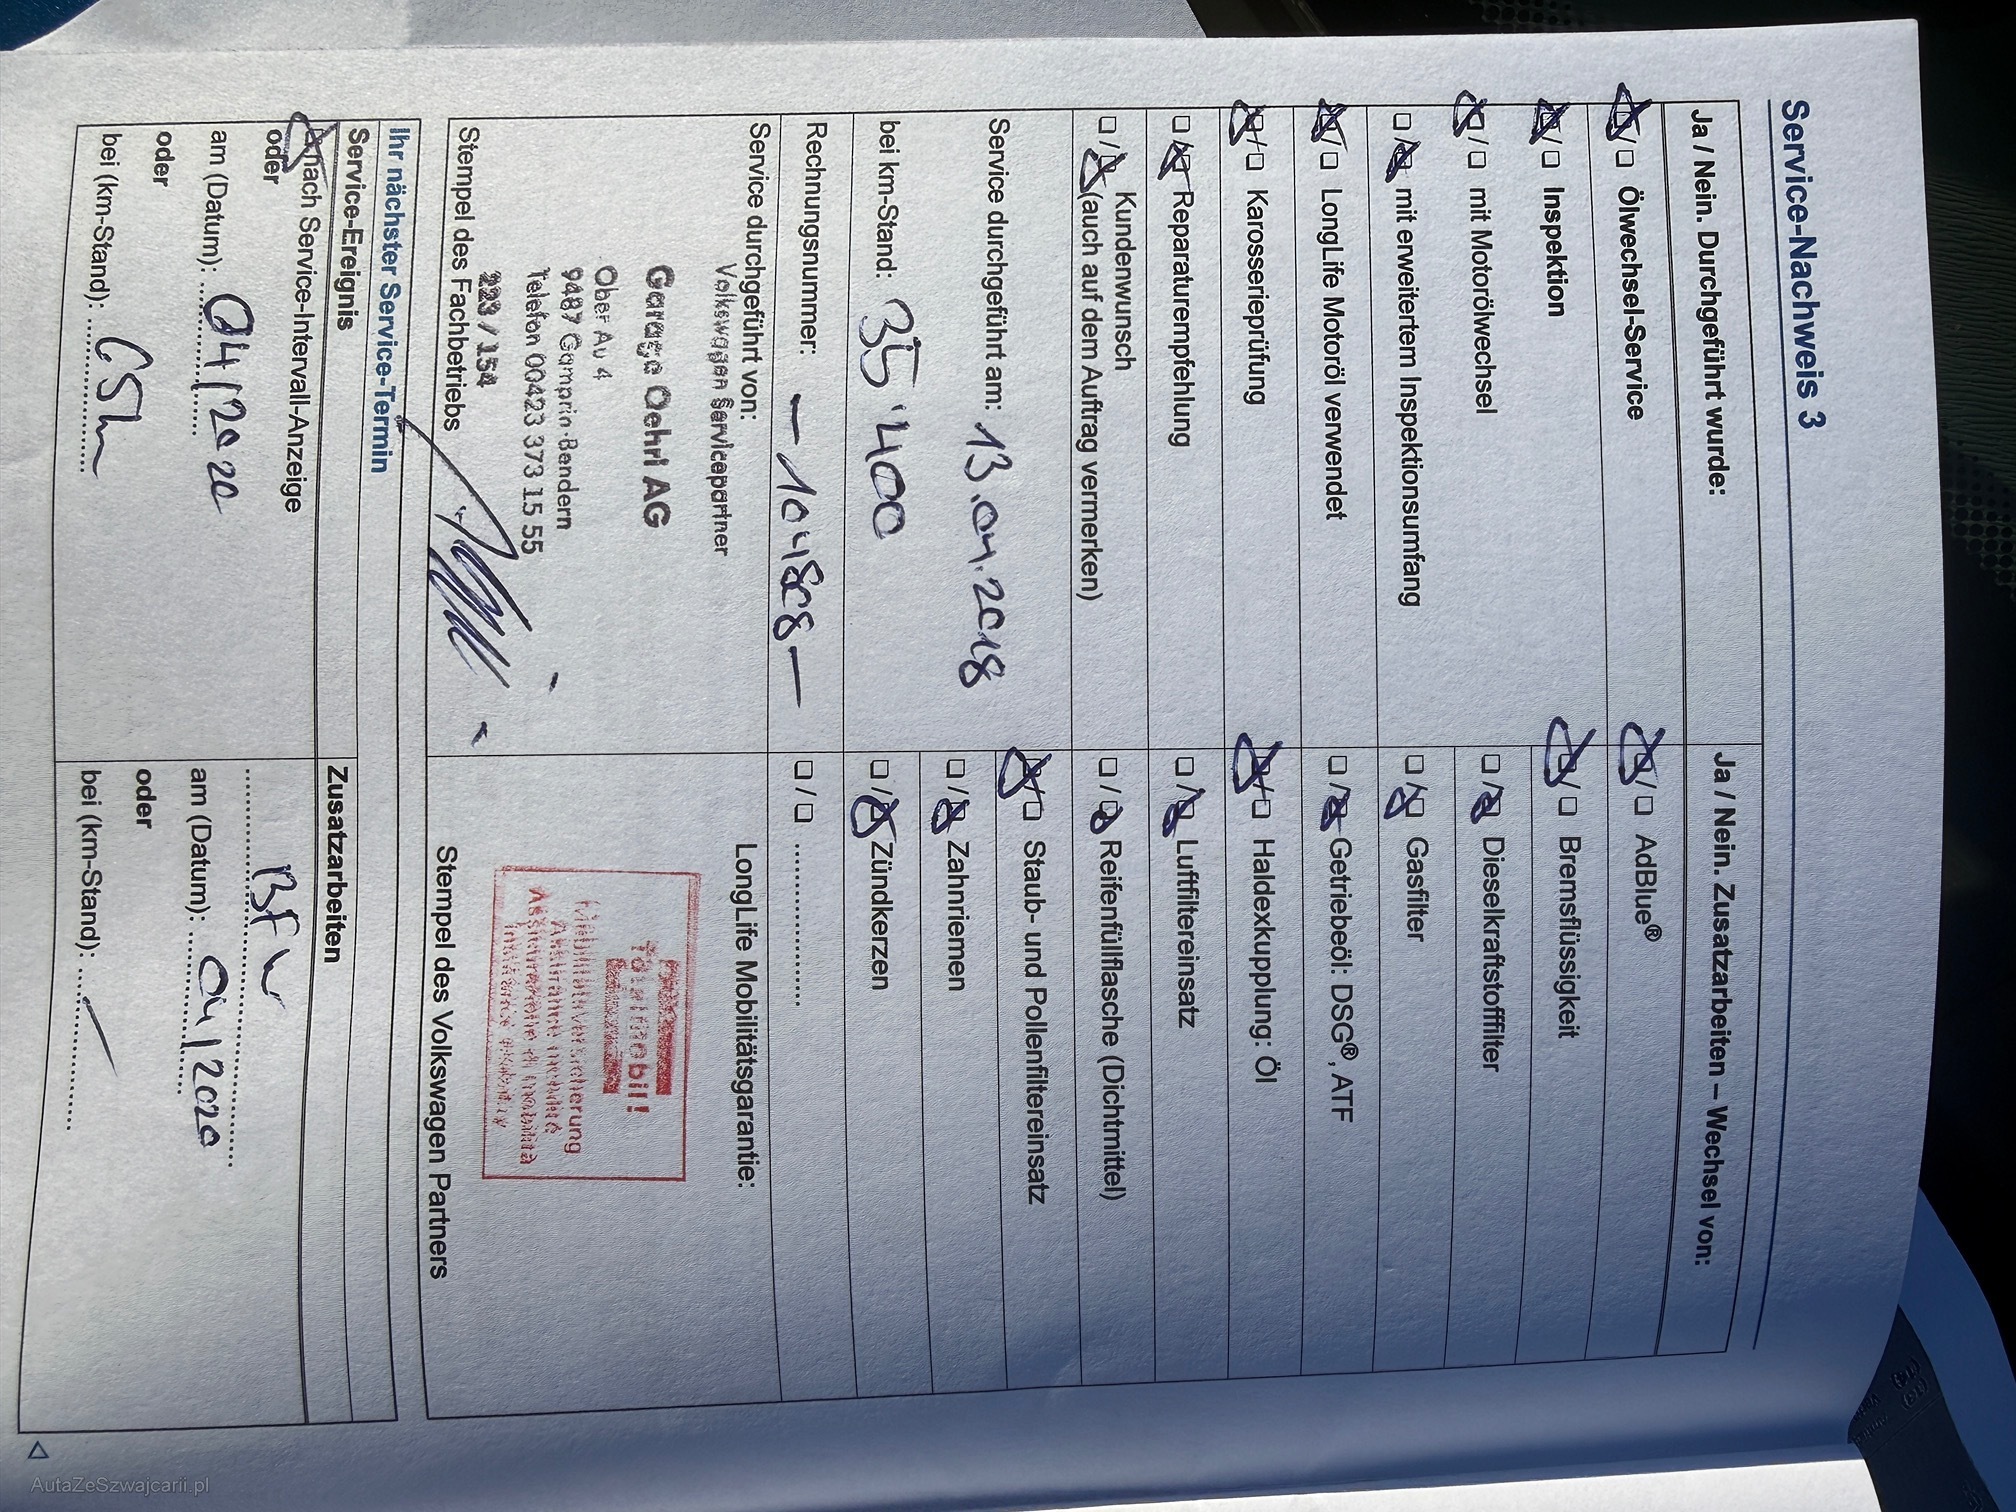 Service-Nachweis 3
Ja / Nein. Durchgeführt wurde:
☒/☐ Ölwechsel-Service
☒/☐ Inspektion
☒/☐ mit Motorölwechsel
☐/☒ mit erweitertem Inspektionsumfang
☒/☐ LongLife Motoröl verwendet
☒/☐ Karosserieprüfung
☐/☒ Reparaturempfehlung
☐/☒ Kundenwunsch
(auch auf dem Auftrag vermerken)
Service durchgeführt am: 13.04.2018
bei km-Stand: 35'400
Rechnungsnummer: – 104808 –
Service durchgeführt von:
Volkswagen Servicepartner
Garage Oehri AG
Ober Au 4
9487 Gamprin-Bendern
Telefon 00423 373 15 55
223 / 154
Stempel des Fachbetriebs
Ja / Nein. Zusatzarbeiten – Wechsel von:
☒/☐ AdBlue®
☒/☐ Bremsflüssigkeit
☐/☒ Dieselkraftstofffilter
☐/☒ Gasfilter
☐/☒ Getriebeöl: DSG®, ATF
☒/☐ Haldexkupplung: Öl
☐/☒ Luftfiltereinsatz
☐/☒ Reifenfüllflasche (Dichtmittel)
☒/☐ Staub- und Pollenfiltereinsatz
☐/☒ Zahnriemen
☐/☒ Zündkerzen
☐/☐ ....................
LongLife Mobilitätsgarantie:
Totalmobil!
Mobilitätsversicherung
Assicurazione di mobilità
Stempel des Volkswagen Partners
Ihr nächster Service-Termin
Service-Ereignis
☒ nach Service-Intervall-Anzeige
oder
am (Datum): 04/2020
oder
bei (km-Stand):
Zusatzarbeiten
BFW
am (Datum): 04/2020
oder
bei (km-Stand): –
AutaZeSzwajcarii.pl